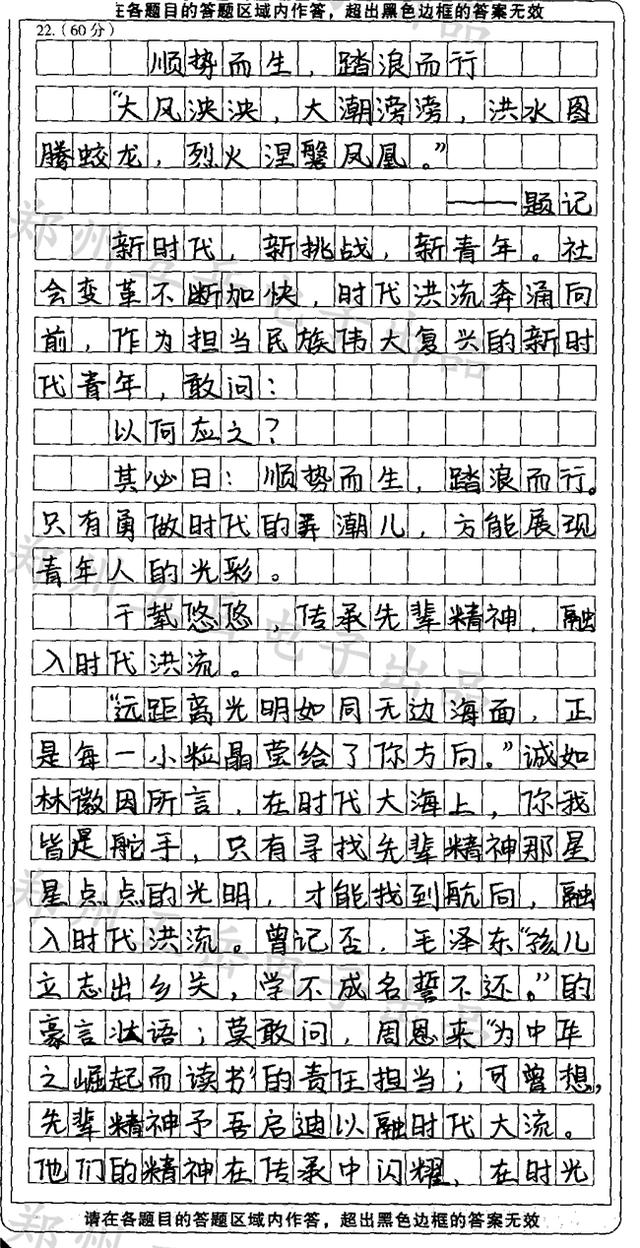 在各题目的答题区域内作答，超出黑色边框的答案无效
22.（60分）
顺势而生，踏浪而行
“大风泱泱，大潮滂滂，洪水图
腾蛟龙，烈火涅磐凤凰。”
——题记
新时代，新挑战，新青年。社
会变革不断加快，时代洪流奔涌向
前，作为担当民族伟大复兴的新时
代青年，敢问：
以何应之？
其必曰：顺势而生，踏浪而行。
只有勇做时代的弄潮儿，方能展现
青年人的光彩。
千载悠悠，传承先辈精神，融
入时代洪流。
“远距离光明如同无边海面，正
是每一小粒晶莹给了你方向。”诚如
林徽因所言，在时代大海上，你我
皆是舵手，只有寻找先辈精神那星
星点点的光明，才能找到航向，融
入时代洪流。曾记否，毛泽东“孩儿
立志出乡关，学不成名誓不还。”的
豪言壮语；莫敢问，周恩来“为中华
之崛起而读书”的责任担当；可曾想，
先辈精神予吾启迪以融时代大流。
他们的精神在传承中闪耀，在时光
请在各题目的答题区域内作答，超出黑色边框的答案无效
郑州五岳电子出品
郑州五岳电子出品
郑州五岳电子出品